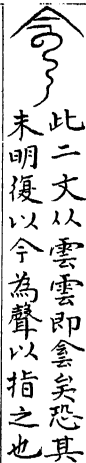 此二文从雲雲即侌矣恐其
未明復以今為聲以指之也